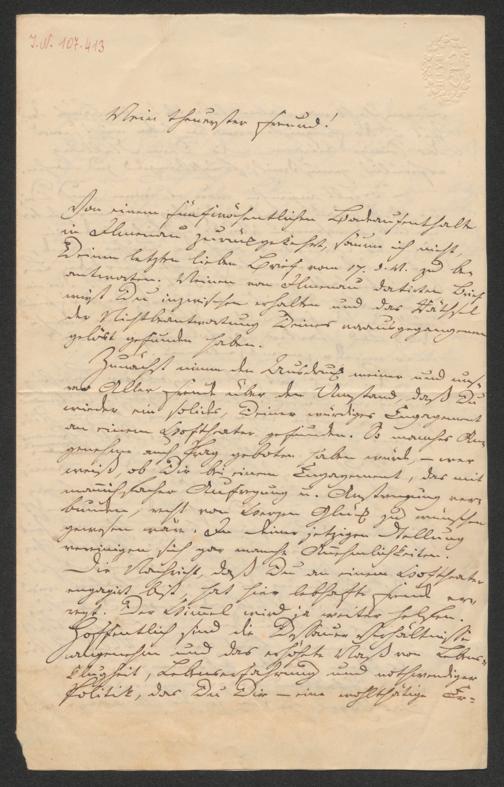 J.N. 107.413
Mein theuerster Freund!
Von einem fünfwöchentlichen Badeaufenthalte
in Ilmenau zurückgekehrt, säume ich nicht,
Deinen letzten lieben Brief vom 17. d. M. zu be
antworten. Meinen von Ilmenau datirten Brief
wirst Du inzwischen erhalten und das Räthsel
der Nichtbeantwortung Deines vorausgegangenen
gelöst gefunden haben.
Zunächst nimm den Ausdruck meiner und uns-
rer Aller Freude über den Umstand, daß Du
wieder ein solides, Deiner würdiges Engagement
an einem Hoftheater gefunden. So manches An
genehme auch Prag geboten haben würde, – wer
weiß ob Dir bei einem Engagement, das mit
mannichfacher Aufregung u. Anstrengung ver
bunden, recht von Herzen Glück zu wünschen
gewesen wäre. In Deiner jetzigen Stellung
vereinigen sich gar manche Annehmlichkeiten.
Die Nachricht, daß Du an einem Hoftheater
engagirt bist, hat hier lebhafte Freude er
regt. Der Himmel wird ja weiter helfen.
Hoffentlich sind die Dessauer Verhältnisse
angenehm und das erhöhte Maß von Lebens-
klugheit, Lebenserfahrung und nothwendiger
Politik, das Du Dir – eine wohlthätige Er-